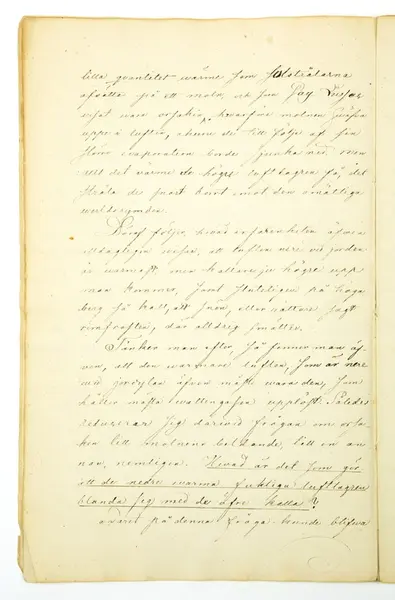 lilla quantitet wärme som solstrålarna
afsätta på ett moln, så som Gay Lussac
visat vara orsaken, hvarföre molnen
uppe i luften, skulle de till följe af sin
evaporation snart sjunka ned. Men
allt det wärme de högre luftlagren få, det
stråla de snart bort emot den omätliga
werldsrymden.
Deraf följer, hvad erfarenheten äfven
alldagligen wisar, att luften nere vid jorden
är warmast men kallare ju högre upp
man kommer, samt slutligen på höga
berg så kall, att snön, eller rättare sagt
, der aldrig smälter.
Tänker man efter, så finner man äf-
ven, att den warmare luften, som är nere
wid jordytan äfven måste wara den, som
håller mästa wattengasen upplöst. Således
reducerar sig härwid frågan om orsa-
ken till molnens bestånde, till en an-
nan, nemligen: Hvad är det som gör
att de nedre warma fuktiga luftlagren
blanda sig med de öfre kalla?
Svaret på denna fråga bende blifwa